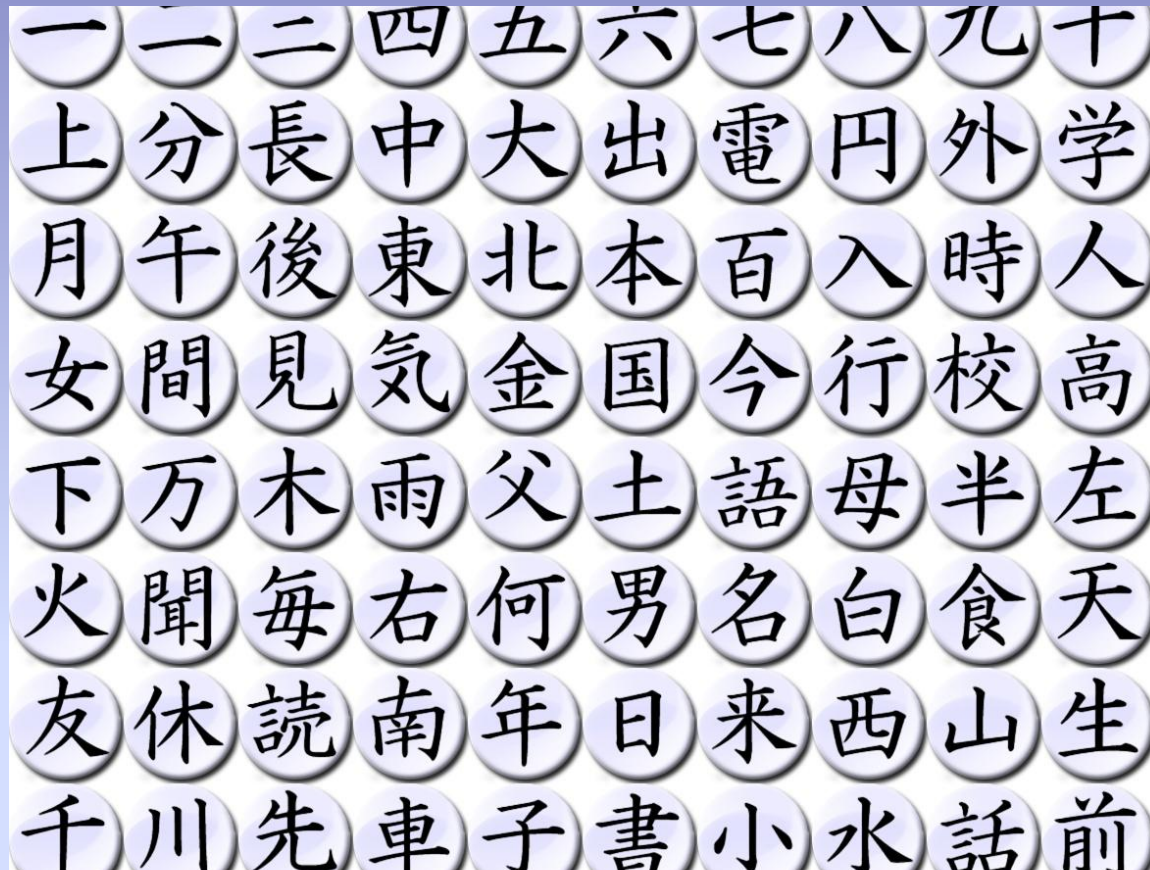 一 二 三 四 五 六 七 八 九 十
上 分 長 中 大 出 電 円 外 学
月 午 後 東 北 本 百 入 時 人
女 間 見 気 金 国 今 行 校 高
下 万 木 雨 父 土 語 母 半 左
火 聞 毎 右 何 男 名 白 食 天
友 休 読 南 年 日 来 西 山 生
千 川 先 車 子 書 小 水 話 前